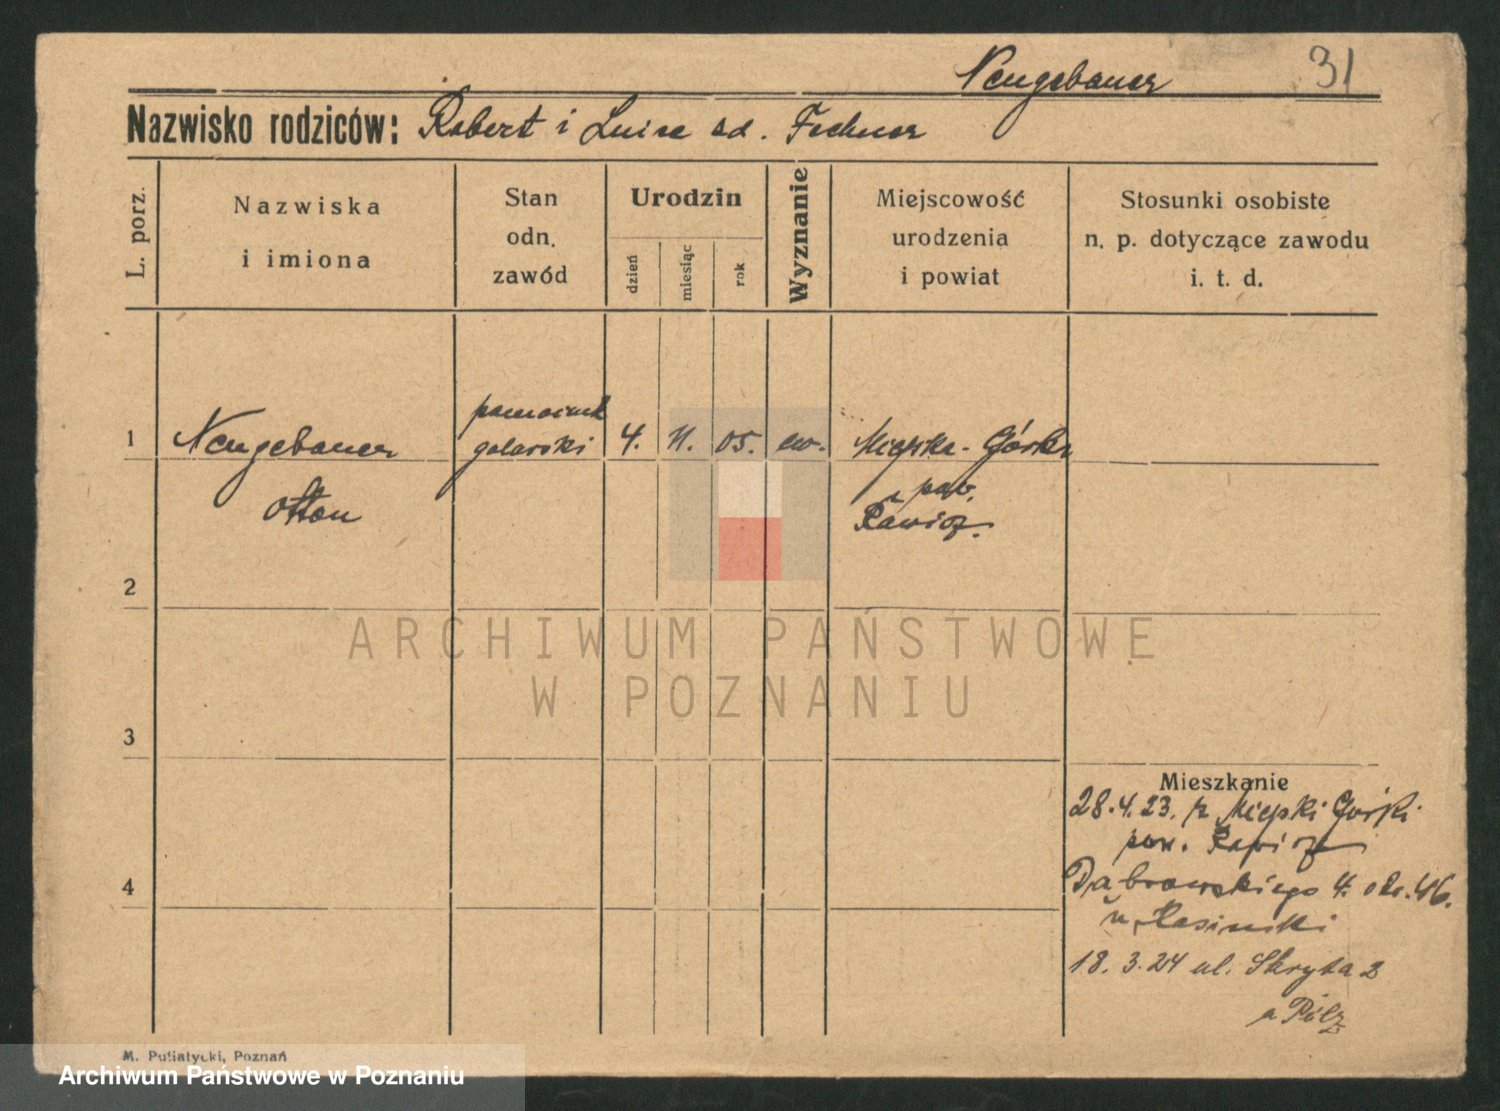 Neugebauer 31
Nazwisko rodziców: Robert i Luise od. Fechner
L. porz.
Nazwiska
i imiona
Stan
odn.
zawód
Urodzin
dzień
miesiąc
rok
Wyznanie
Miejscowość
urodzenia
i powiat
Stosunki osobiste
n. p. dotyczące zawodu
i. t. d.
1 Neugebauer
Otton
pomocnik
4. 11. 05. ew. Miejska-Górka
pow.
Rawicz.
2
3
4
Mieszkanie
28.4.23. z Miejski Górki
pow. Rawicz
Dąbrowskiego 4.
18. 3. 24 ul. Skryta 2
M. Putiatycki, Poznań
ARCHIWUM PAŃSTWOWE
W POZNANIU
Archiwum Państwowe w Poznaniu